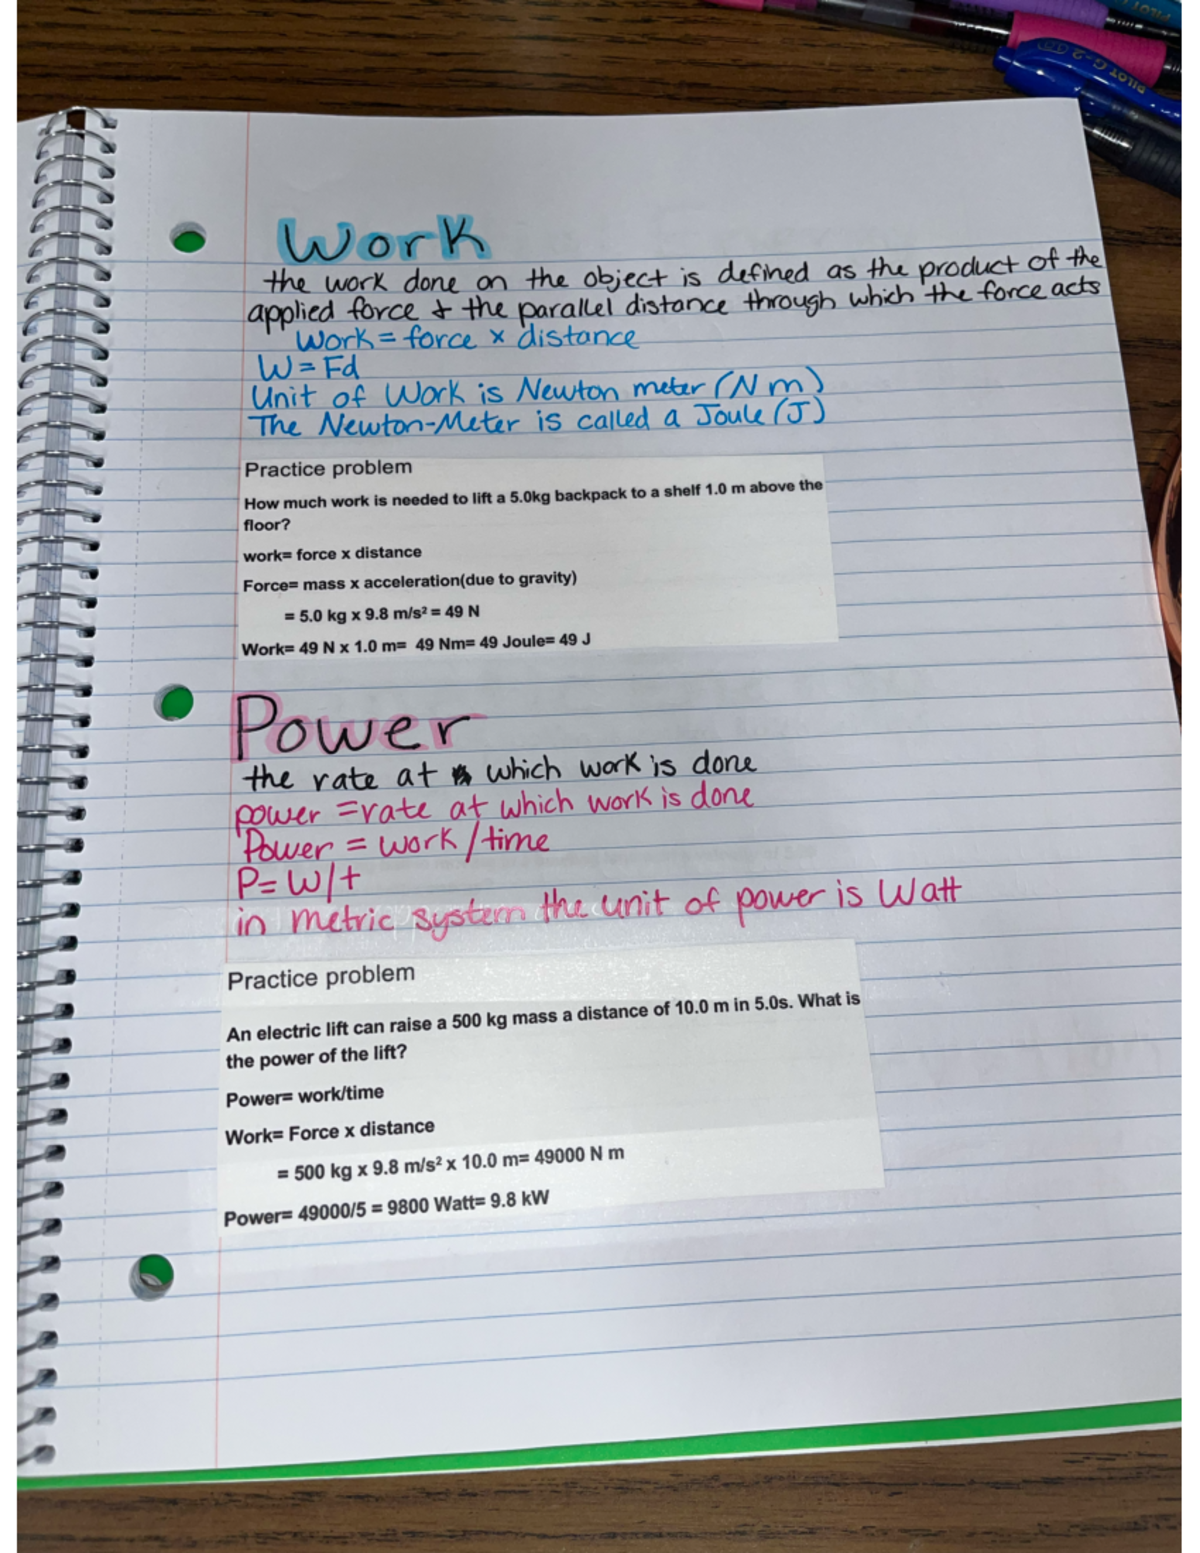 PILOT
PILOT G-2
Work
the work done on the object is defined as the product of the
applied force & the parallel distance through which the force acts
Work = force x distance
W = Fd
Unit of Work is Newton meter (N m)
The Newton-Meter is called a Joule (J)
Practice problem
How much work is needed to lift a 5.0kg backpack to a shelf 1.0 m above the
floor?
work= force x distance
Force= mass x acceleration(due to gravity)
= 5.0 kg x 9.8 m/s² = 49 N
Work= 49 N x 1.0 m= 49 Nm= 49 Joule= 49 J
Power
the rate at which work is done
power = rate at which work is done
Power = work/time
P= W/t
in metric system the unit of power is Watt
Practice problem
An electric lift can raise a 500 kg mass a distance of 10.0 m in 5.0s. What is
the power of the lift?
Power= work/time
Work= Force x distance
= 500 kg x 9.8 m/s² x 10.0 m= 49000 N m
Power= 49000/5 = 9800 Watt= 9.8 kW